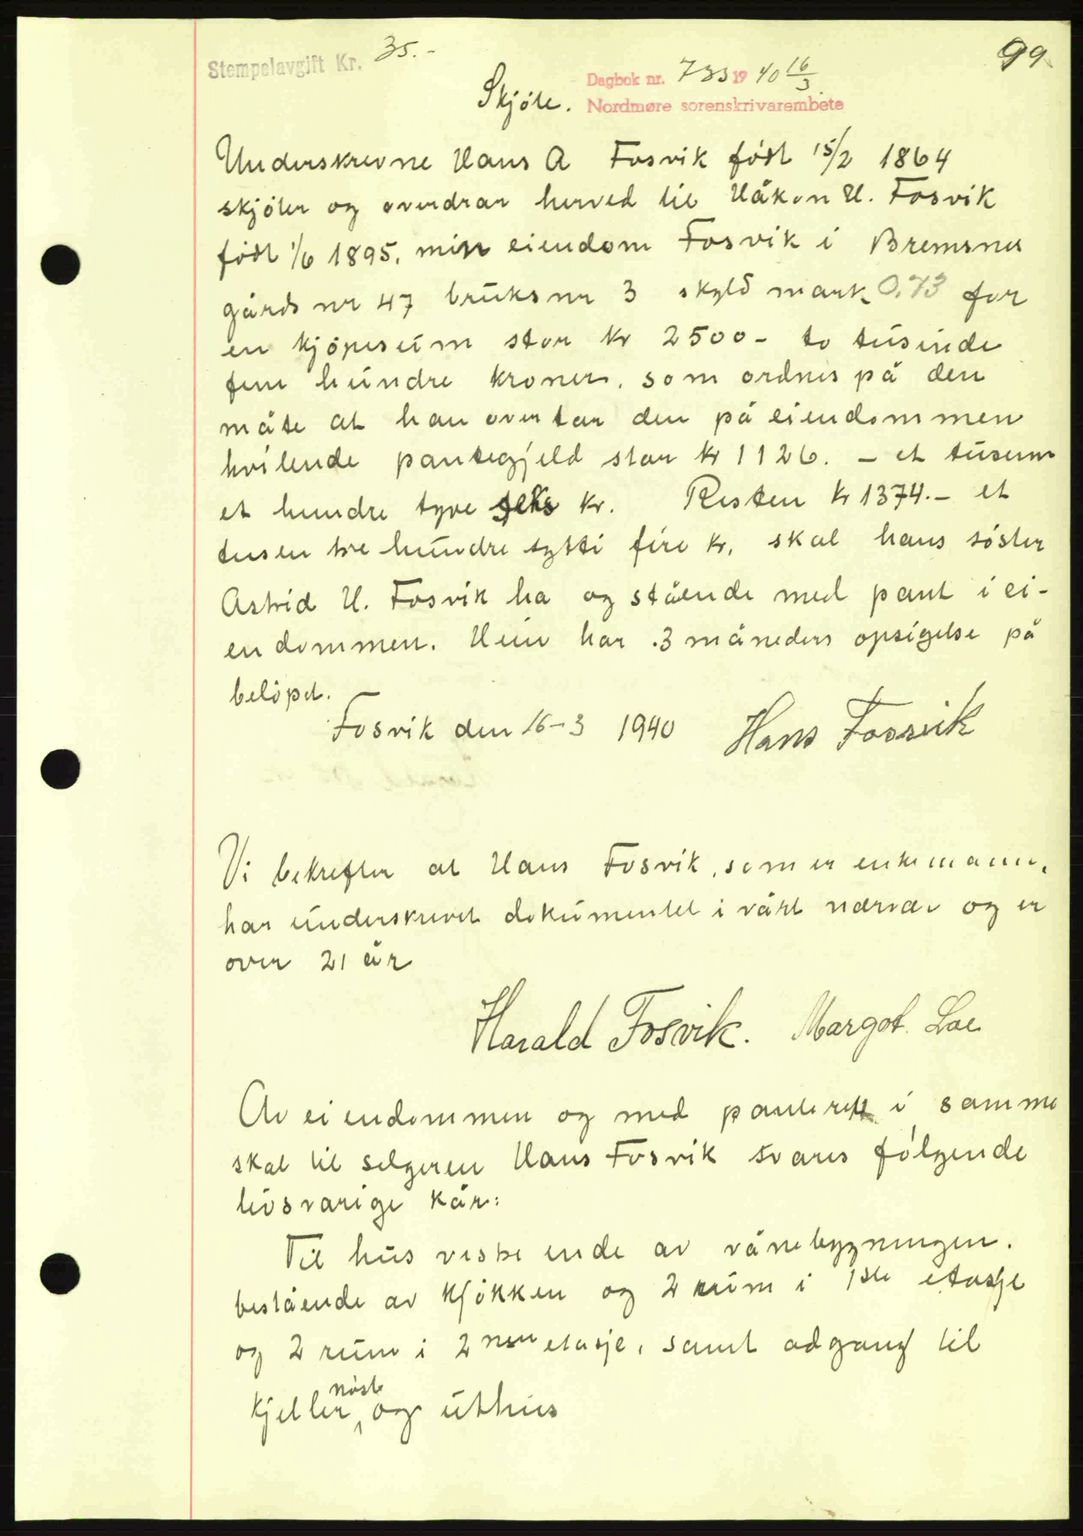 99
Stempelavgift Kr. 35.-
Dagbok nr. 733 19 40 16/3
Skjöte. Nordmøre sorenskrivarembete
Underskrevne Hans A Fosvik födt 15/2 1864
skjöter og overdrar herved til Håkon H. Fosvik
födt 1/6 1895. min eiendom Fosvik i Bremsnes
gårds nr 47 bruks nr 3 skyld mark 0.73 for
en kjöpesum stor kr 2500- to tusinde
fem hundre kroner. som ordnes på den
måte at han overtar den på eiendommen
hvilende pantegjeld stor kr 1126. - et tusen
et hundre tyve seks kr. Resten kr 1374.- et
tusen tre hundre sytti fire kr. skal hans söster
Astrid H. Fosvik ha og stående med pant i ei-
endommen. Hun har 3 måneders opsigelse på
belöpet.
Fosvik den 16-3 1940 Hans Fosvik
Vi bekrefter at Hans Fosvik, som er enkemann,
har underskrevet dokumentet i vårt nærvær og er
over 21 år
Harald Fosvik. Margot Loe
Av eiendommen og med panterett i samme
skal til selgeren Hans Fosvik svares fölgende
livsvarige kår:
Til hus vestre ende av vånebygningen.
bestående av kjökken og 2 rum i 1ste etasje
og 2 rum i 2nen etasje, samt adgang til
nöst
kjeller, og uthus